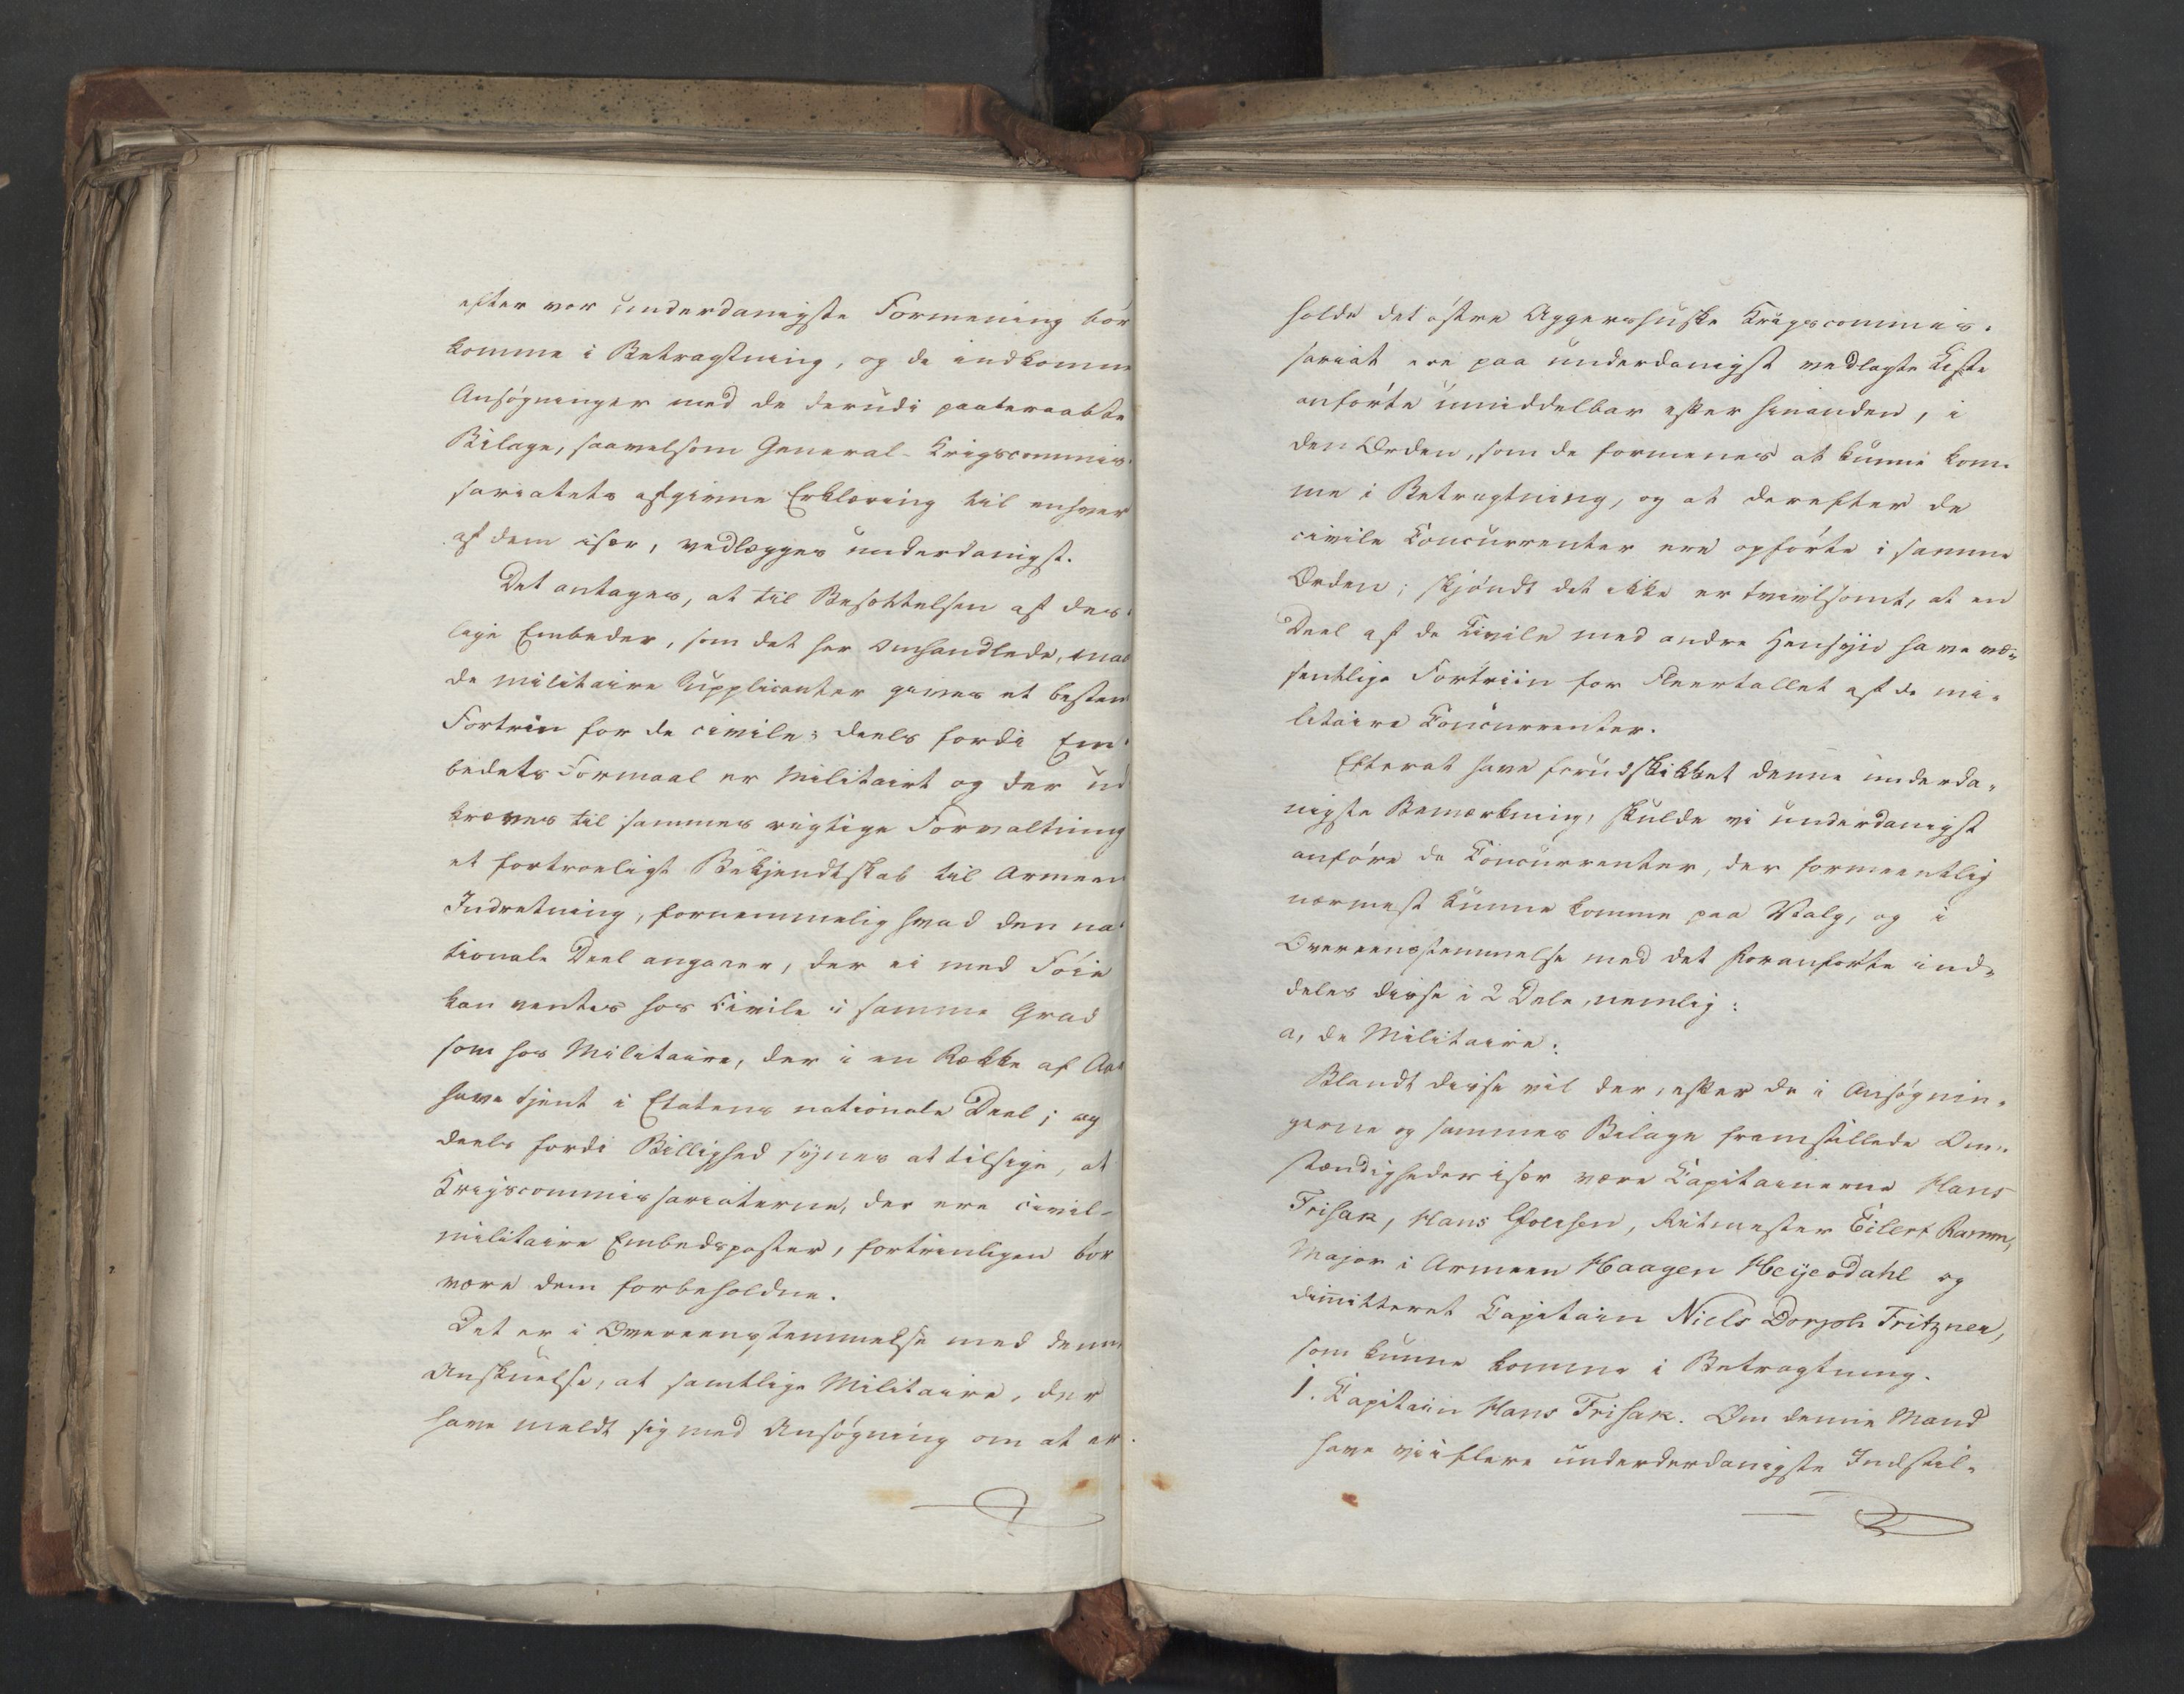 efter vor underdanigste Formening bör
komme i Betragtning, og de indkomne
Ansögninger med de derudi paaberaabte
Bilage, saavelsom General-Krigscommis-
sariatets afgivne Erklæring til enhver
af dem især, vedlægges underdanigst.
Det antages, at til Besættelsen af des-
lige Embeder, som det her omhandlede, maa
de militaire Supplicanter gives et bestem
Fortrin for de civile; deels fordi Em-
bedets Formaal er Militairt og der ud
kræves til sammes rigtige Forvaltning
et fortroeligt Bekjendtskab til Armeens
Indretning, fornemmelig hvad den na-
tionale Deel angaaer, der ei med Föie
kan ventes hos Civile i samme Grad
som hos Militaire, der i en Række af Aar
have tjent i Etatens nationale Deel; og
deels fordi Billighed synes at tilsige, at
Krigscommissariaterne, der ere civil-
militaire Embedsposter, fortrinligen bör
være dem forbeholdne.
Det er i Overeenstemmelse med denne
Anskuelse, at samtlige Militaire, der
have meldt sig med Ansögning om at er-
holde det östre Aggershuske Krigscommis-
sariat ere paa underdanigst vedlagte Liste
anförte umiddelbar efter hinanden, i
den Orden, som de formenes at kunne kom-
me i Betragtning, og at derefter de
civile Concurrenter ere opförte i samme
Orden; skjöndt det ikke er tvivlsomt, at en
Deel af de Civile med andre Hensyn have væ-
sentlige Fortriin for Fleertallet af de mi-
litaire Concurrenter.
Efterat have forudskikket denne underda-
nigste Bemærkning, skulde vi underdanigst
anföre de Concurrenter, der formeentlig
nærmest kunne komme paa Valg, og i
Overeensstemmelse med det foranförte ind-
deles disse i 2 Dele, nemlig:
a, de Militaire:
Blandt disse vil der, efter de i Ansögnin-
gerne og sammes Bilage fremstillede Om-
stændigheder især være Capitainerne Hans
Frisak, Hans Ritmester Eilert Ramm,
Major i Armeen Haagen Heyerdahl og
dimitteret Capitain Niels Dorph Fritzner,
som kunne komme i Betragtning.
1. Capitain Hans Frisak. Om denne Mand
have vi i flere underderdanigste Indstil-